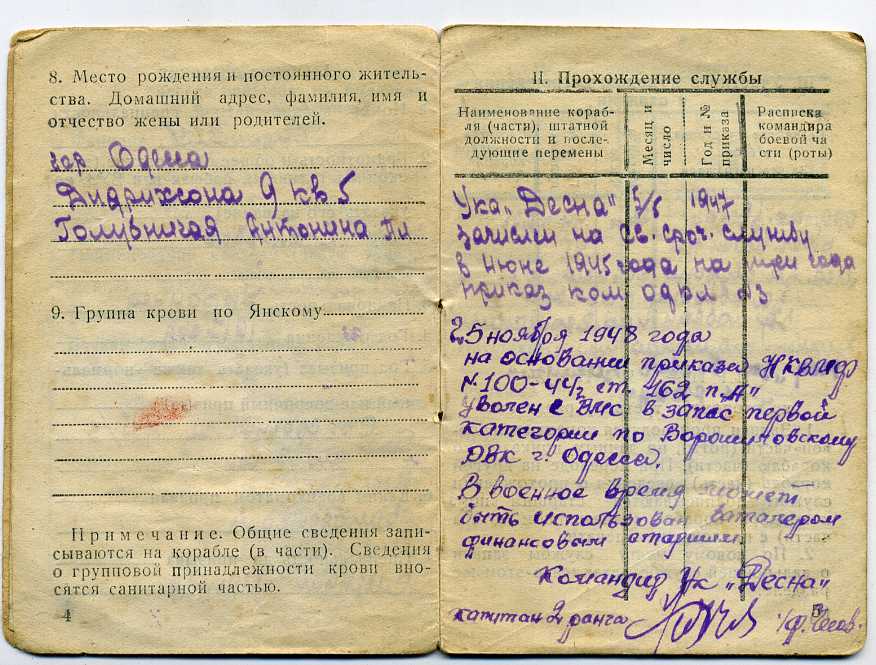 8. Место рождения и постоянного житель-
ства. Домашний адрес, фамилия, имя и
отчество жены или родителей.
гор Одесса
Дидрихсона 9 кв 5
Антонина
9. Группа крови по Янскому
Примечание. Общие сведения запи-
сываются на корабле (в части). Сведения
о групповой принадлежности крови вно-
сятся санитарной частью.
4
II. Прохождение службы
Наименование кораб-
ля (части), штатной
должности и после-
дующие перемены
Месяц и
число
Год и №
приказа
Расписка
командира
боевой ча-
сти (роты)
Ук "Десна" 5/5 1947
зачислен на св. сроч. службу
в июне 1945 года на три года
приказ ком
25 ноября 1948 года
на основании приказа НКВМФ
N 100-44г, ст. 162 п. "А"
уволен с ВМС в запас первой
категории по Ворошиловскому
РВК г. Одесса.
В военное время может
быть использован баталером
финансовым старшим.
Командир Ук "Десна"
капитан 2 ранга
5